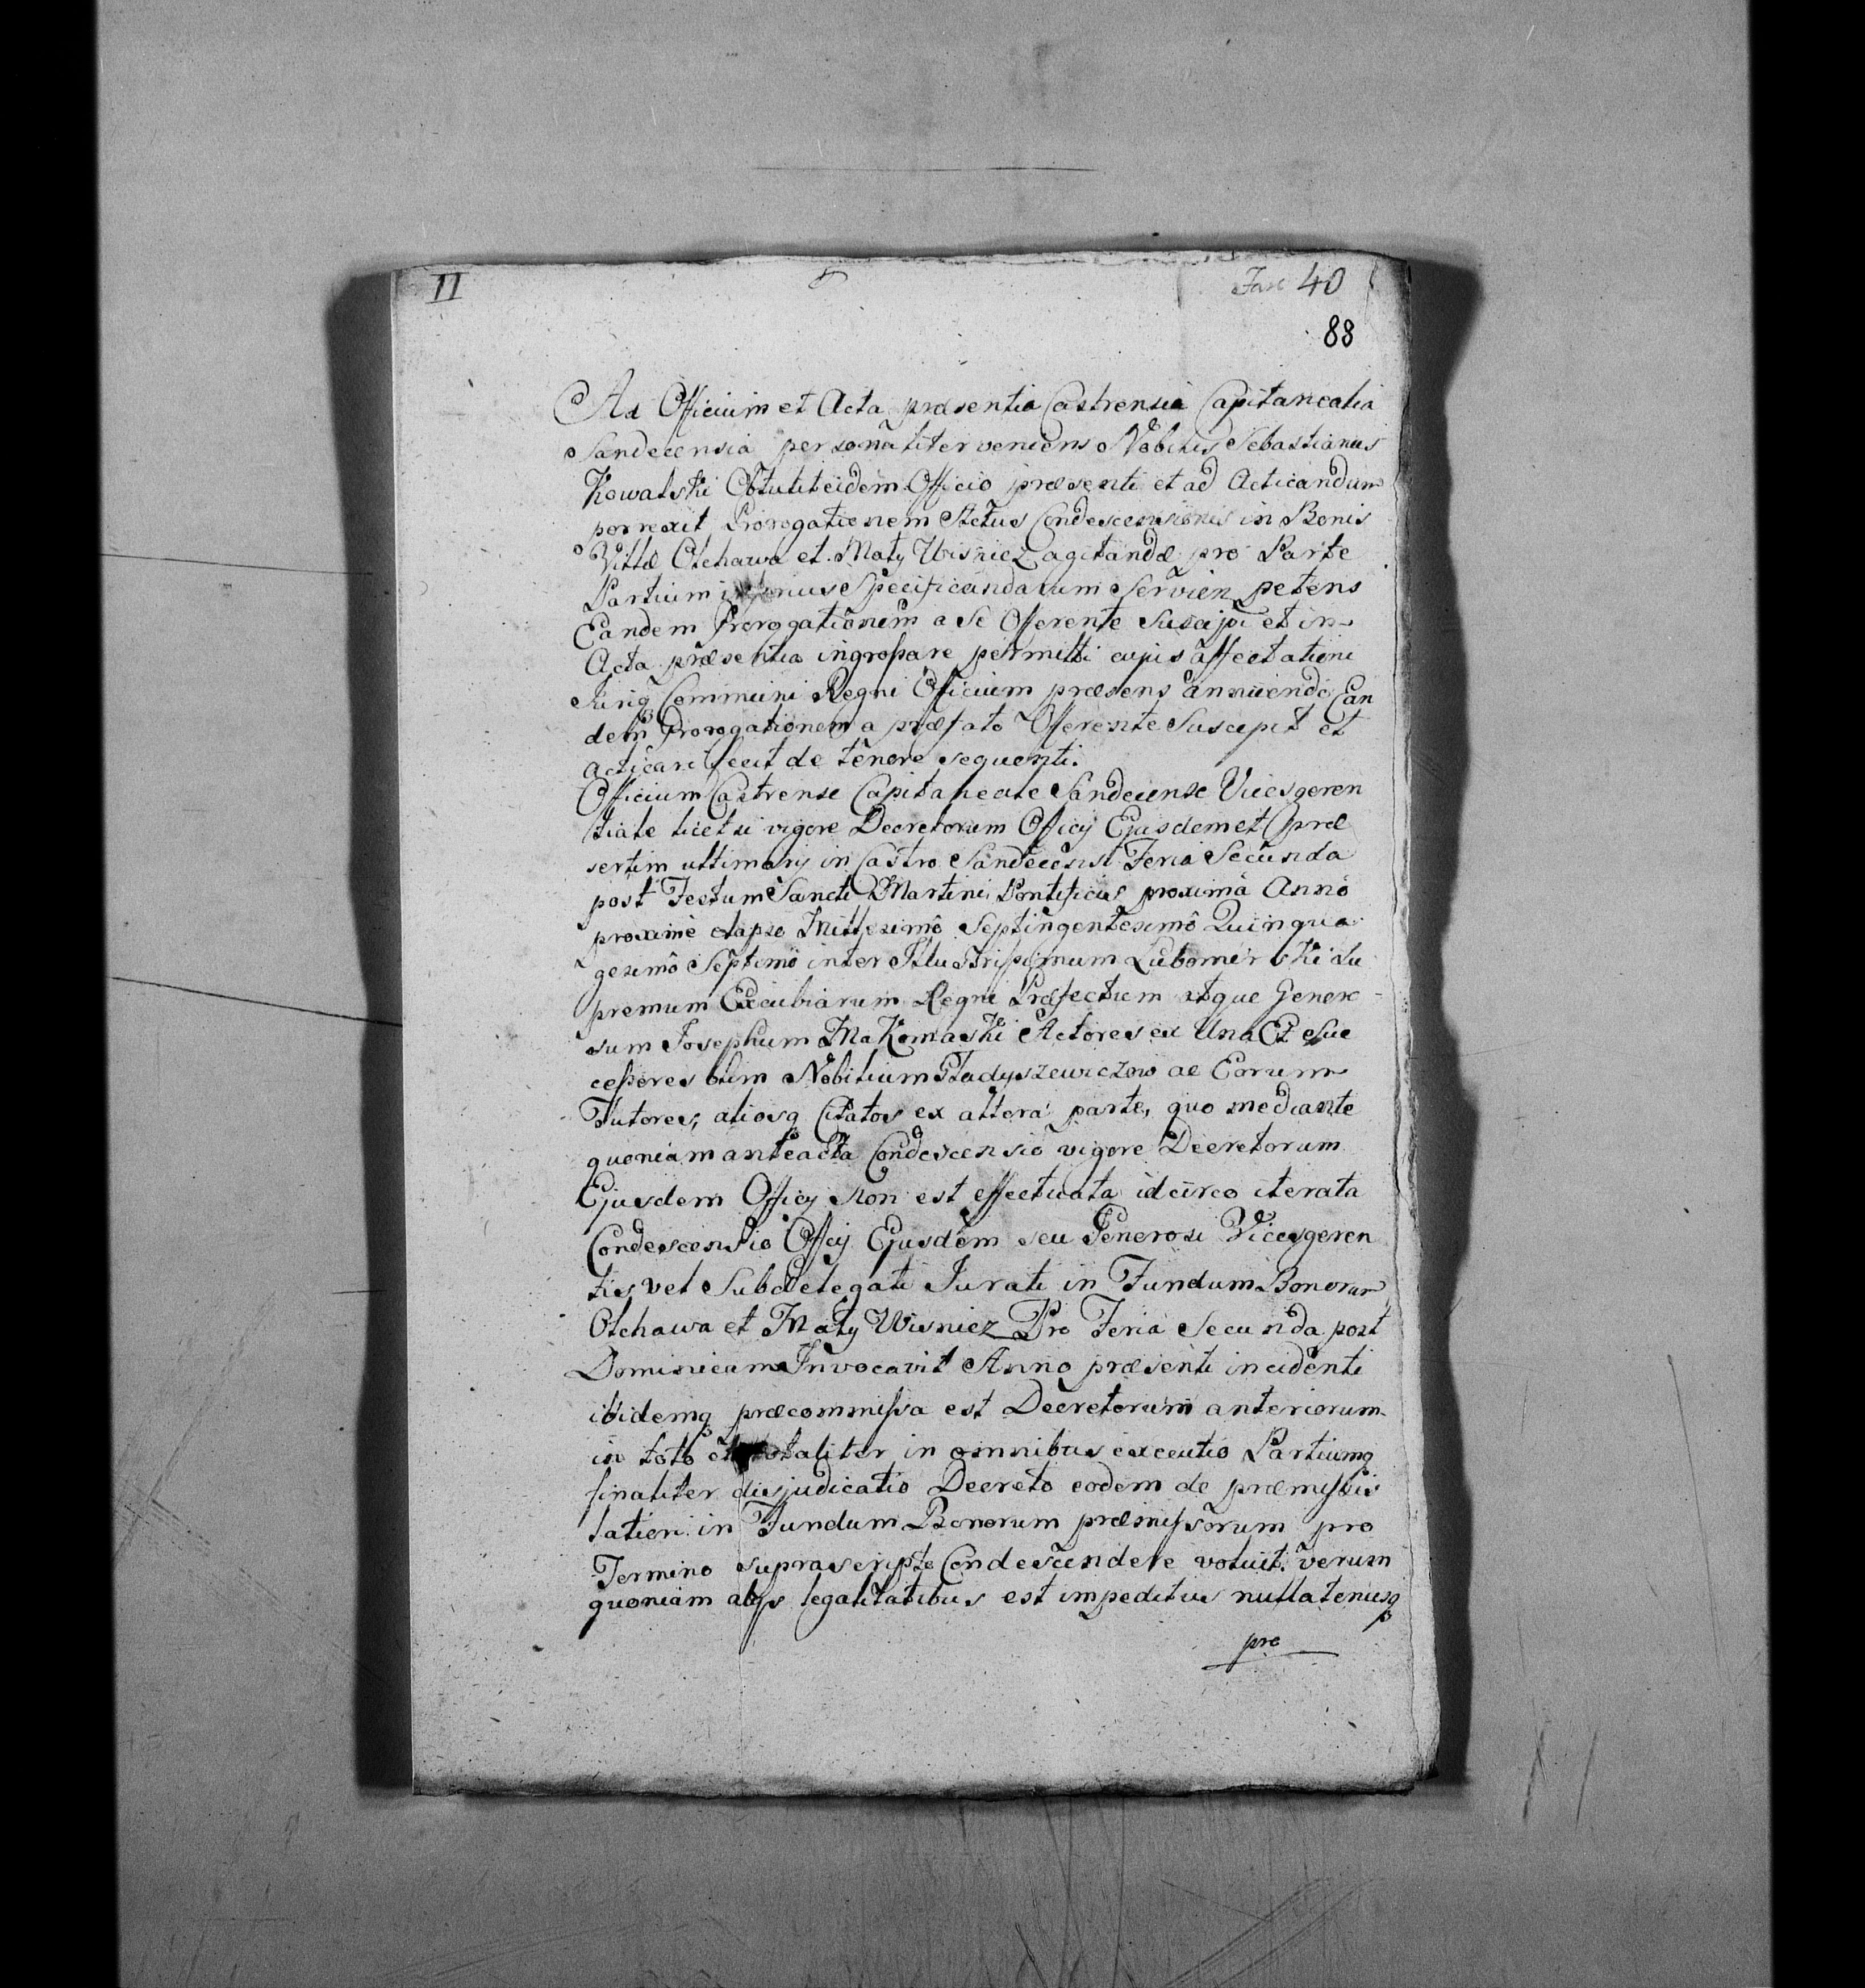 II
Fasc 40
88
Ad Officium et Acta præsentia Castrensia Capitanealia
Sandecensia personaliter veniens Nobilis Sebastianus
Kowalski Obtulit eidem Officio præsenti et ad Acticandum
porrexit Prorogationem Actus Condescensionis in Bonis
Villæ Olchawa et Mały Wisnicz agitandæ pro Parte
Partium inferius Specificandarum Servien petens
Eandem Prorogationem a Se Offerente Suscipi et in
Acta præsentia ingrossare permitti cujus affectationi
Juriq Communi Regni Officium præsens annuendo Ean
dem Prorogationem a præfato Offerente Suscepit et
acticari fecit de tenore sequenti.
Officium Castrense Capitaneale Sandecense Vicesgeren
tiale licet si vigore Decretorum Officij Ejusdemet præ
sertim ultimarij in Castro Sandecensi Feria Secunda
post Festum Sancti Martini Pontificis proxima Anno
proximè elapso Millesimô Septingentesimô Quinqua
gesimô Septimô inter Illustrissimum Lubomirski Su
premum Excubiarum Regni Præfectum atque Genero
sum Josephum Makomaski Actores ex Una Et Suc
cessores olim Nobilium Stadyszewiczow ac Eorum
Tutores, aliosq Citatos ex altera parte, quo mediante
quoniam anteacta Condescensio vigore Decretorum
Ejusdem Officij non est effectuata idcirco iterata
Condescensio Officij Ejusdem seu Generosi Vicesgeren
tis, vel Subdelegati Jurati in Fundum Bonorum
Olchawa et Mały Wisnicz Pro Feria Secunda post
Dominicam Invocavit Anno præsenti incidenti
ibidemq præcommissa est Decretorum anteriorum
in toto et totaliter in omnibus executio Partiumq
finaliter disjudicatio Decreto eodem de præmissis
latiori in Fundum Bonorum præmissorum pro
Termino suprascripto Condescendere voluit. verum
quoniam alijs legalitatibus est impeditus nullatenusq
pre